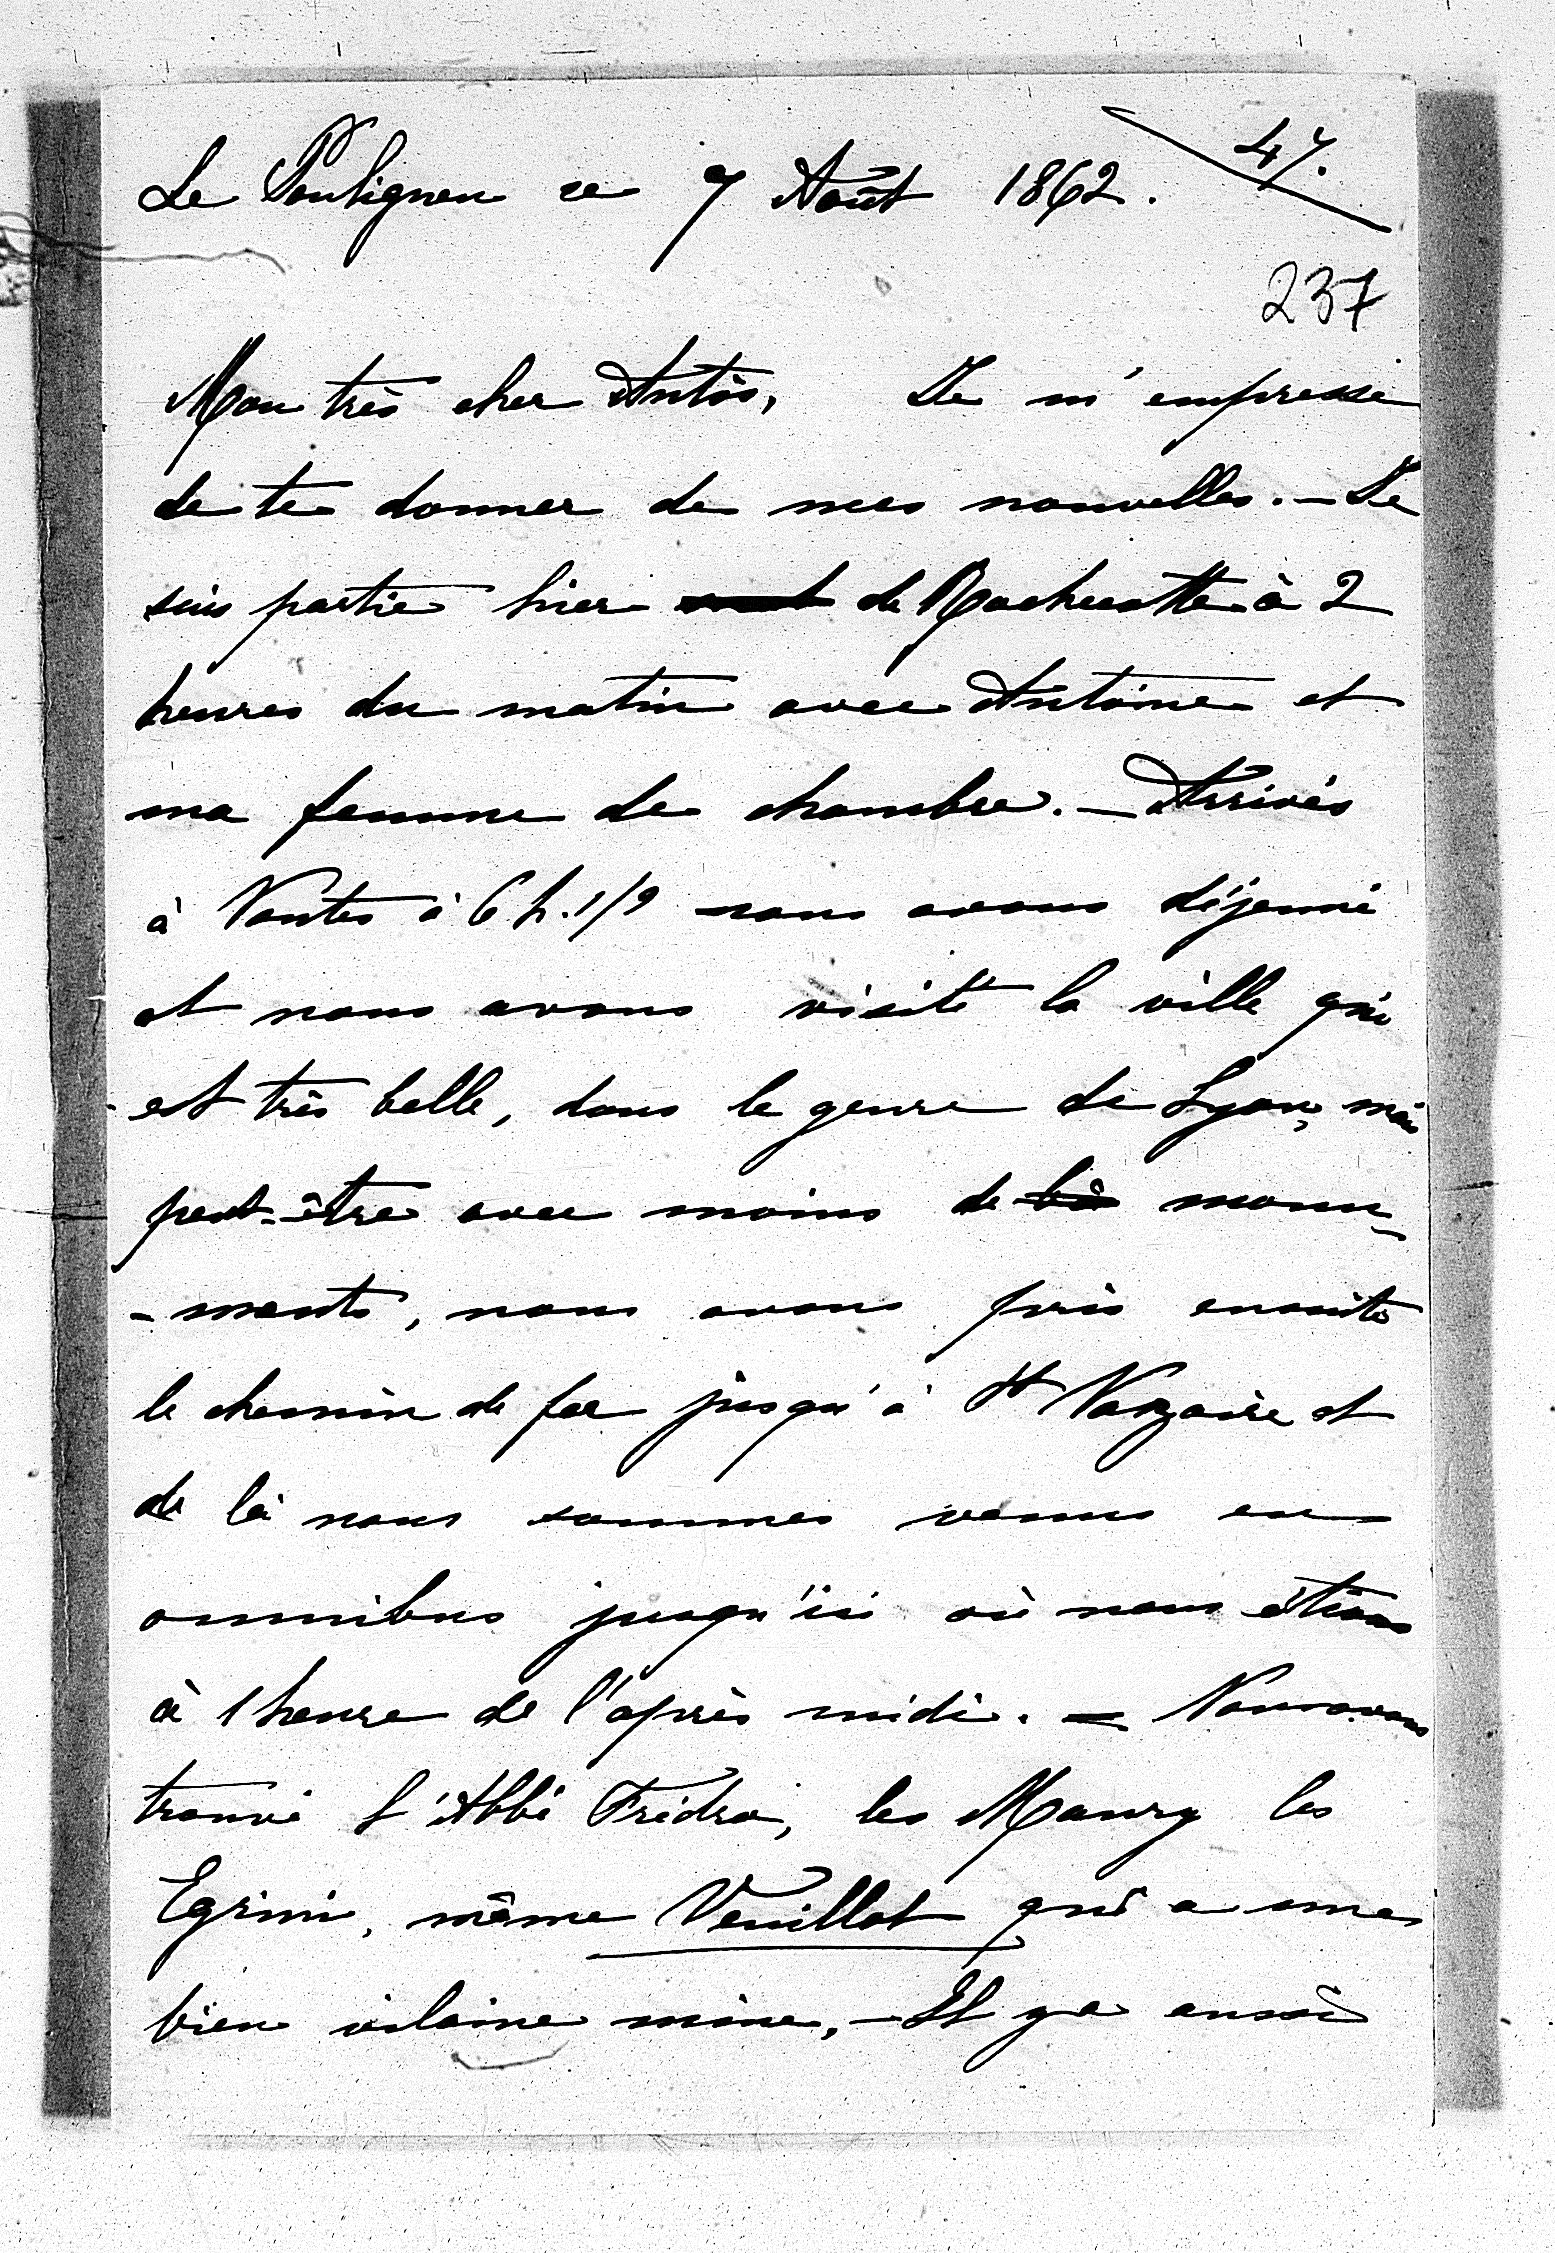 Le Pouliguen ce 7 Août 1862.
47.
237
Mon très cher Antós, Je m'empresse
de te donner de mes nouvelles. – Je
suis partie hier de Rochecotte à 2
heures du matin avec Antoine et
ma femme de chambre. – Arrivés
à Nantes à 6 h. 1/2 nous avons déjeuné
et nous avons visité la ville qui
est très belle, dans le genre de Lyon, mais
peut-être avec moins de monu-
-ments, nous avons pris ensuite
le chemin de fer jusqu'à St Nazaire et
de là nous sommes venus en
omnibus jusqu'ici où nous étions
à 1 heure de l'après midi. – Nous avons
trouvé l'Abbé Frédro, les Maury les
même Veuillot qui a une
bien vilaine mine, – Il y a aussi